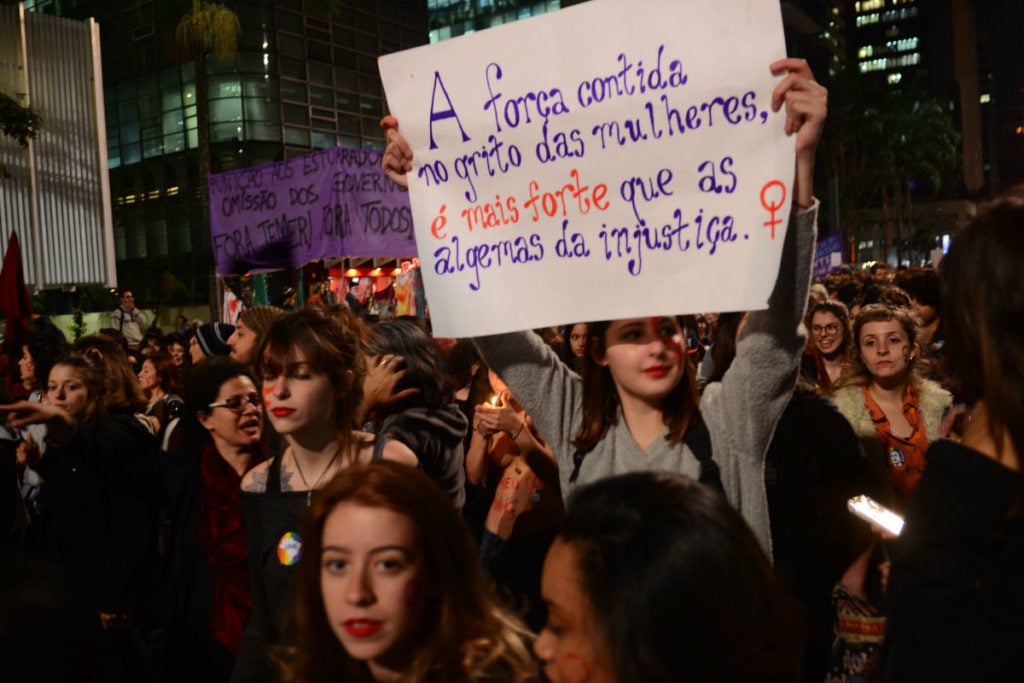 A força contida
no grito das mulheres,
é mais forte que as
algemas da injustiça. ♀
PUNIÇÃO AOS ESTUPRADO
OMISSÃO DOS GOVERNO
FORA TEMER! FORA TODOS!
MEU CO